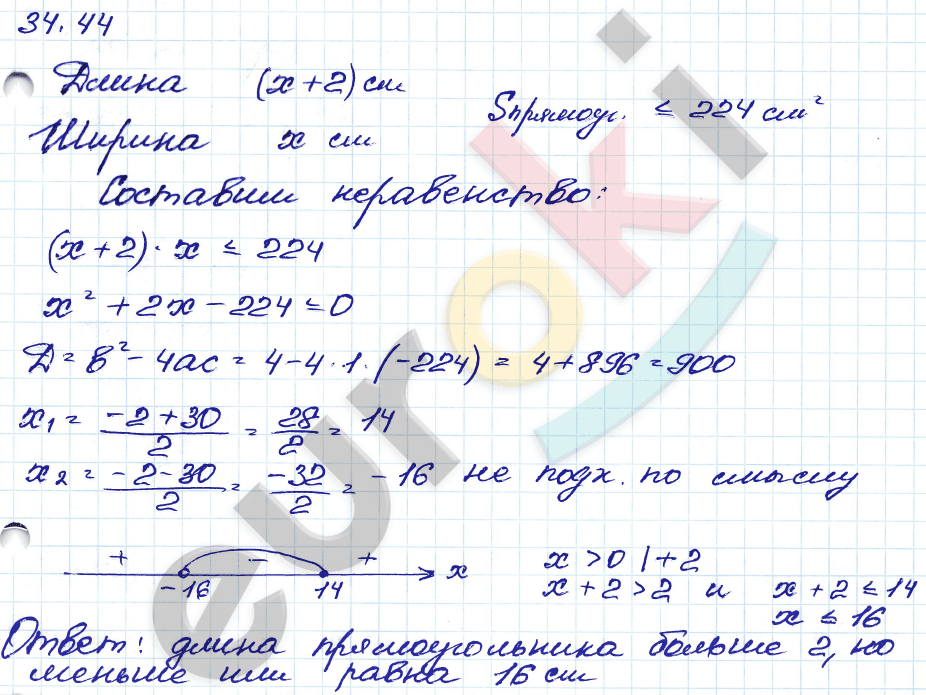 34.44
Длина (x+2) см
Sпрямоуг. ≤ 224 см²
Ширина x см
Составим неравенство:
(x+2)·x ≤ 224
x² + 2x - 224 = 0
D = b² - 4ac = 4 - 4·1·(-224) = 4 + 896 = 900
x₁ = (-2+30)/2 = 28/2 = 14
x₂ = (-2-30)/2 = -32/2 = -16 не подх. по смыслу
+ - + x
-16 14
x > 0 | +2
x + 2 > 2 и x + 2 ≤ 14
x ≤ 16
Ответ: длина прямоугольника больше 2, но
меньше или равна 16 см
euroki